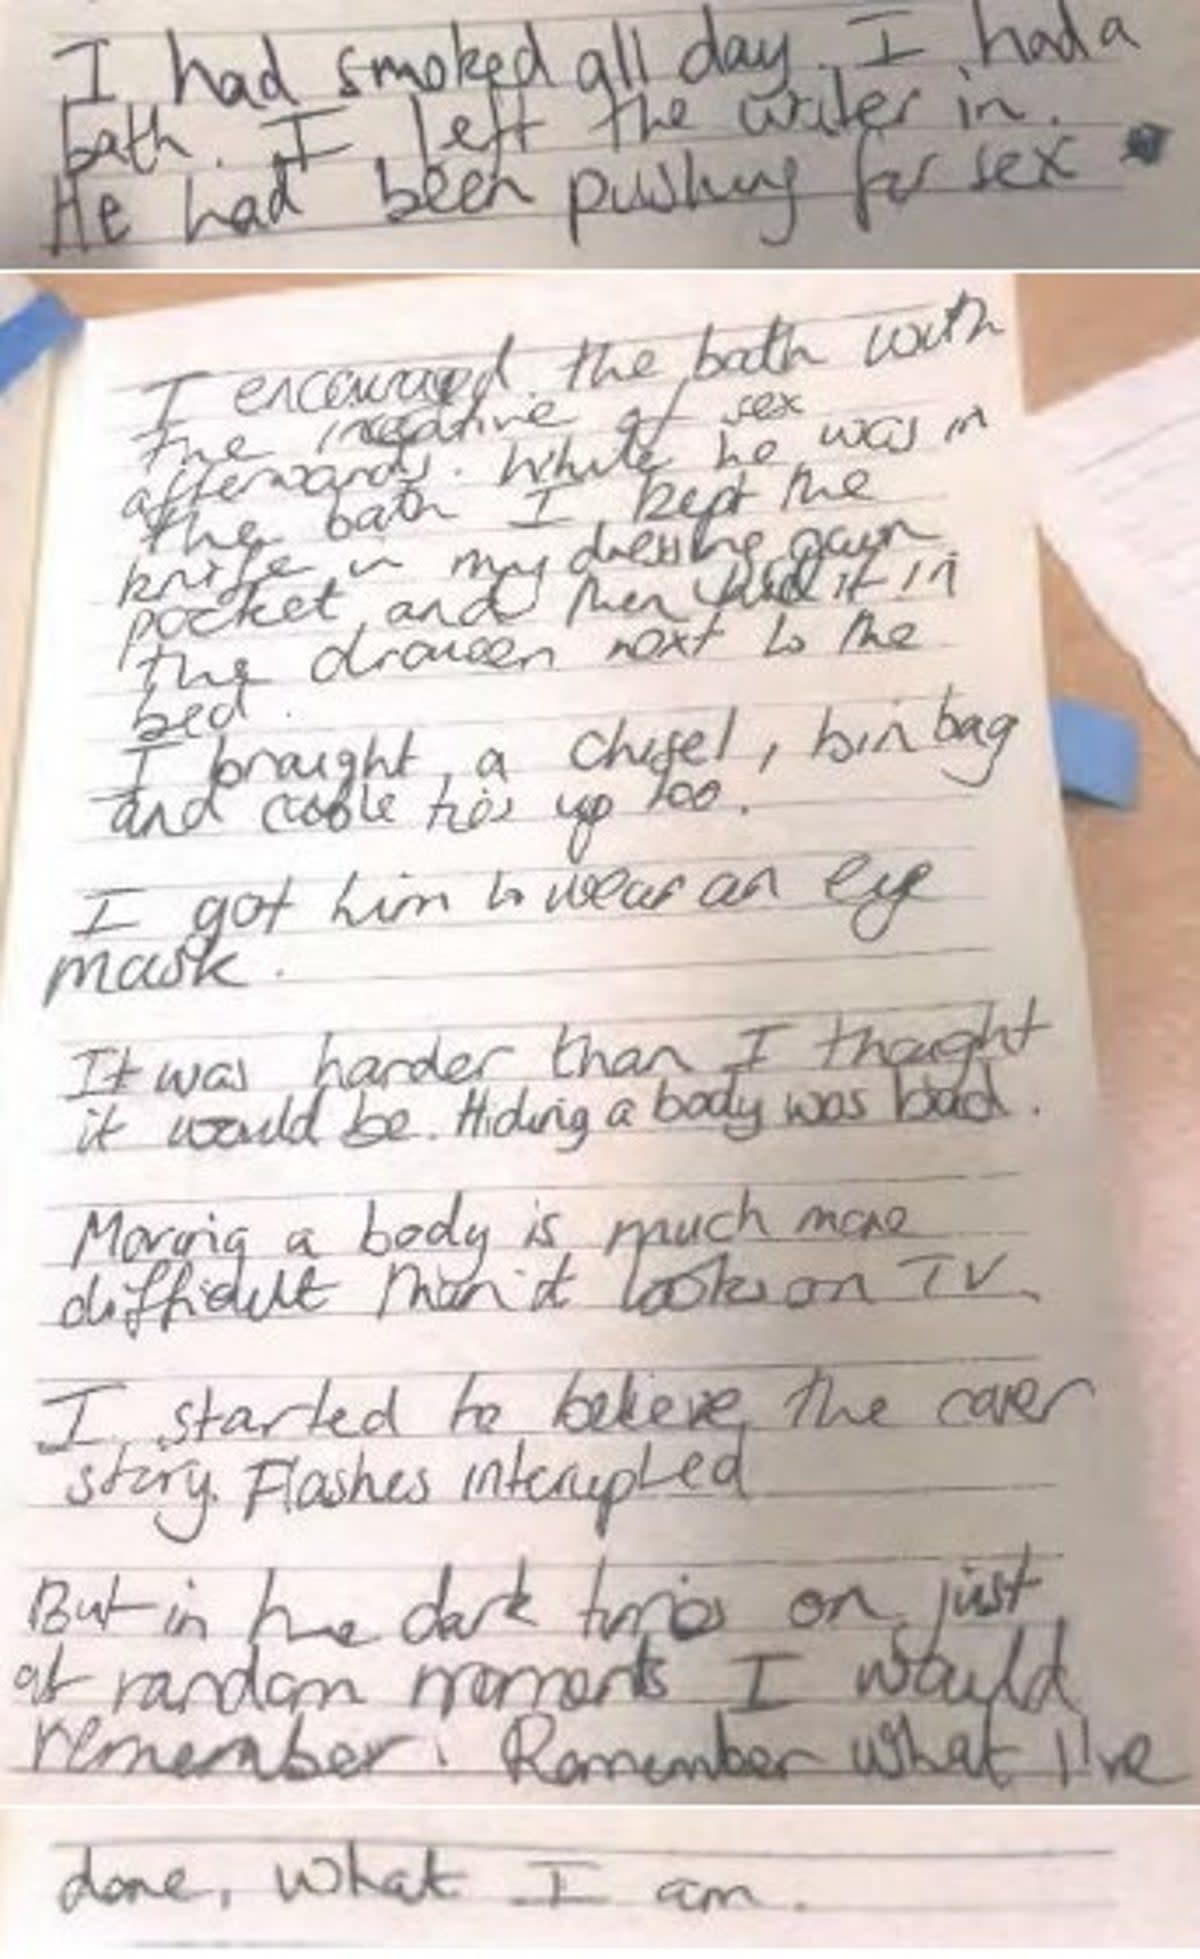 I had smoked all day. I had a
bath. I left the writer in.
He had been pushing for sex
I encouraged the bath with
the incentive of sex
afterwards. While he was in
the bath I kept the
knife in my dressing gown
pocket and then hid it in
the drawer next to the
bed.
I braught, a chisel, bin bag
and cable ties up too.
I got him to wear an eye
mask.
It was harder than I thaught
it would be. Hiding a body was bad.
Moving a body is much more
difficult than it looks on TV.
I started to believe the cover
story. Flashes interupted
But in the dark times or just
at random moments I would
remember. Remember what I've
done, what I am.